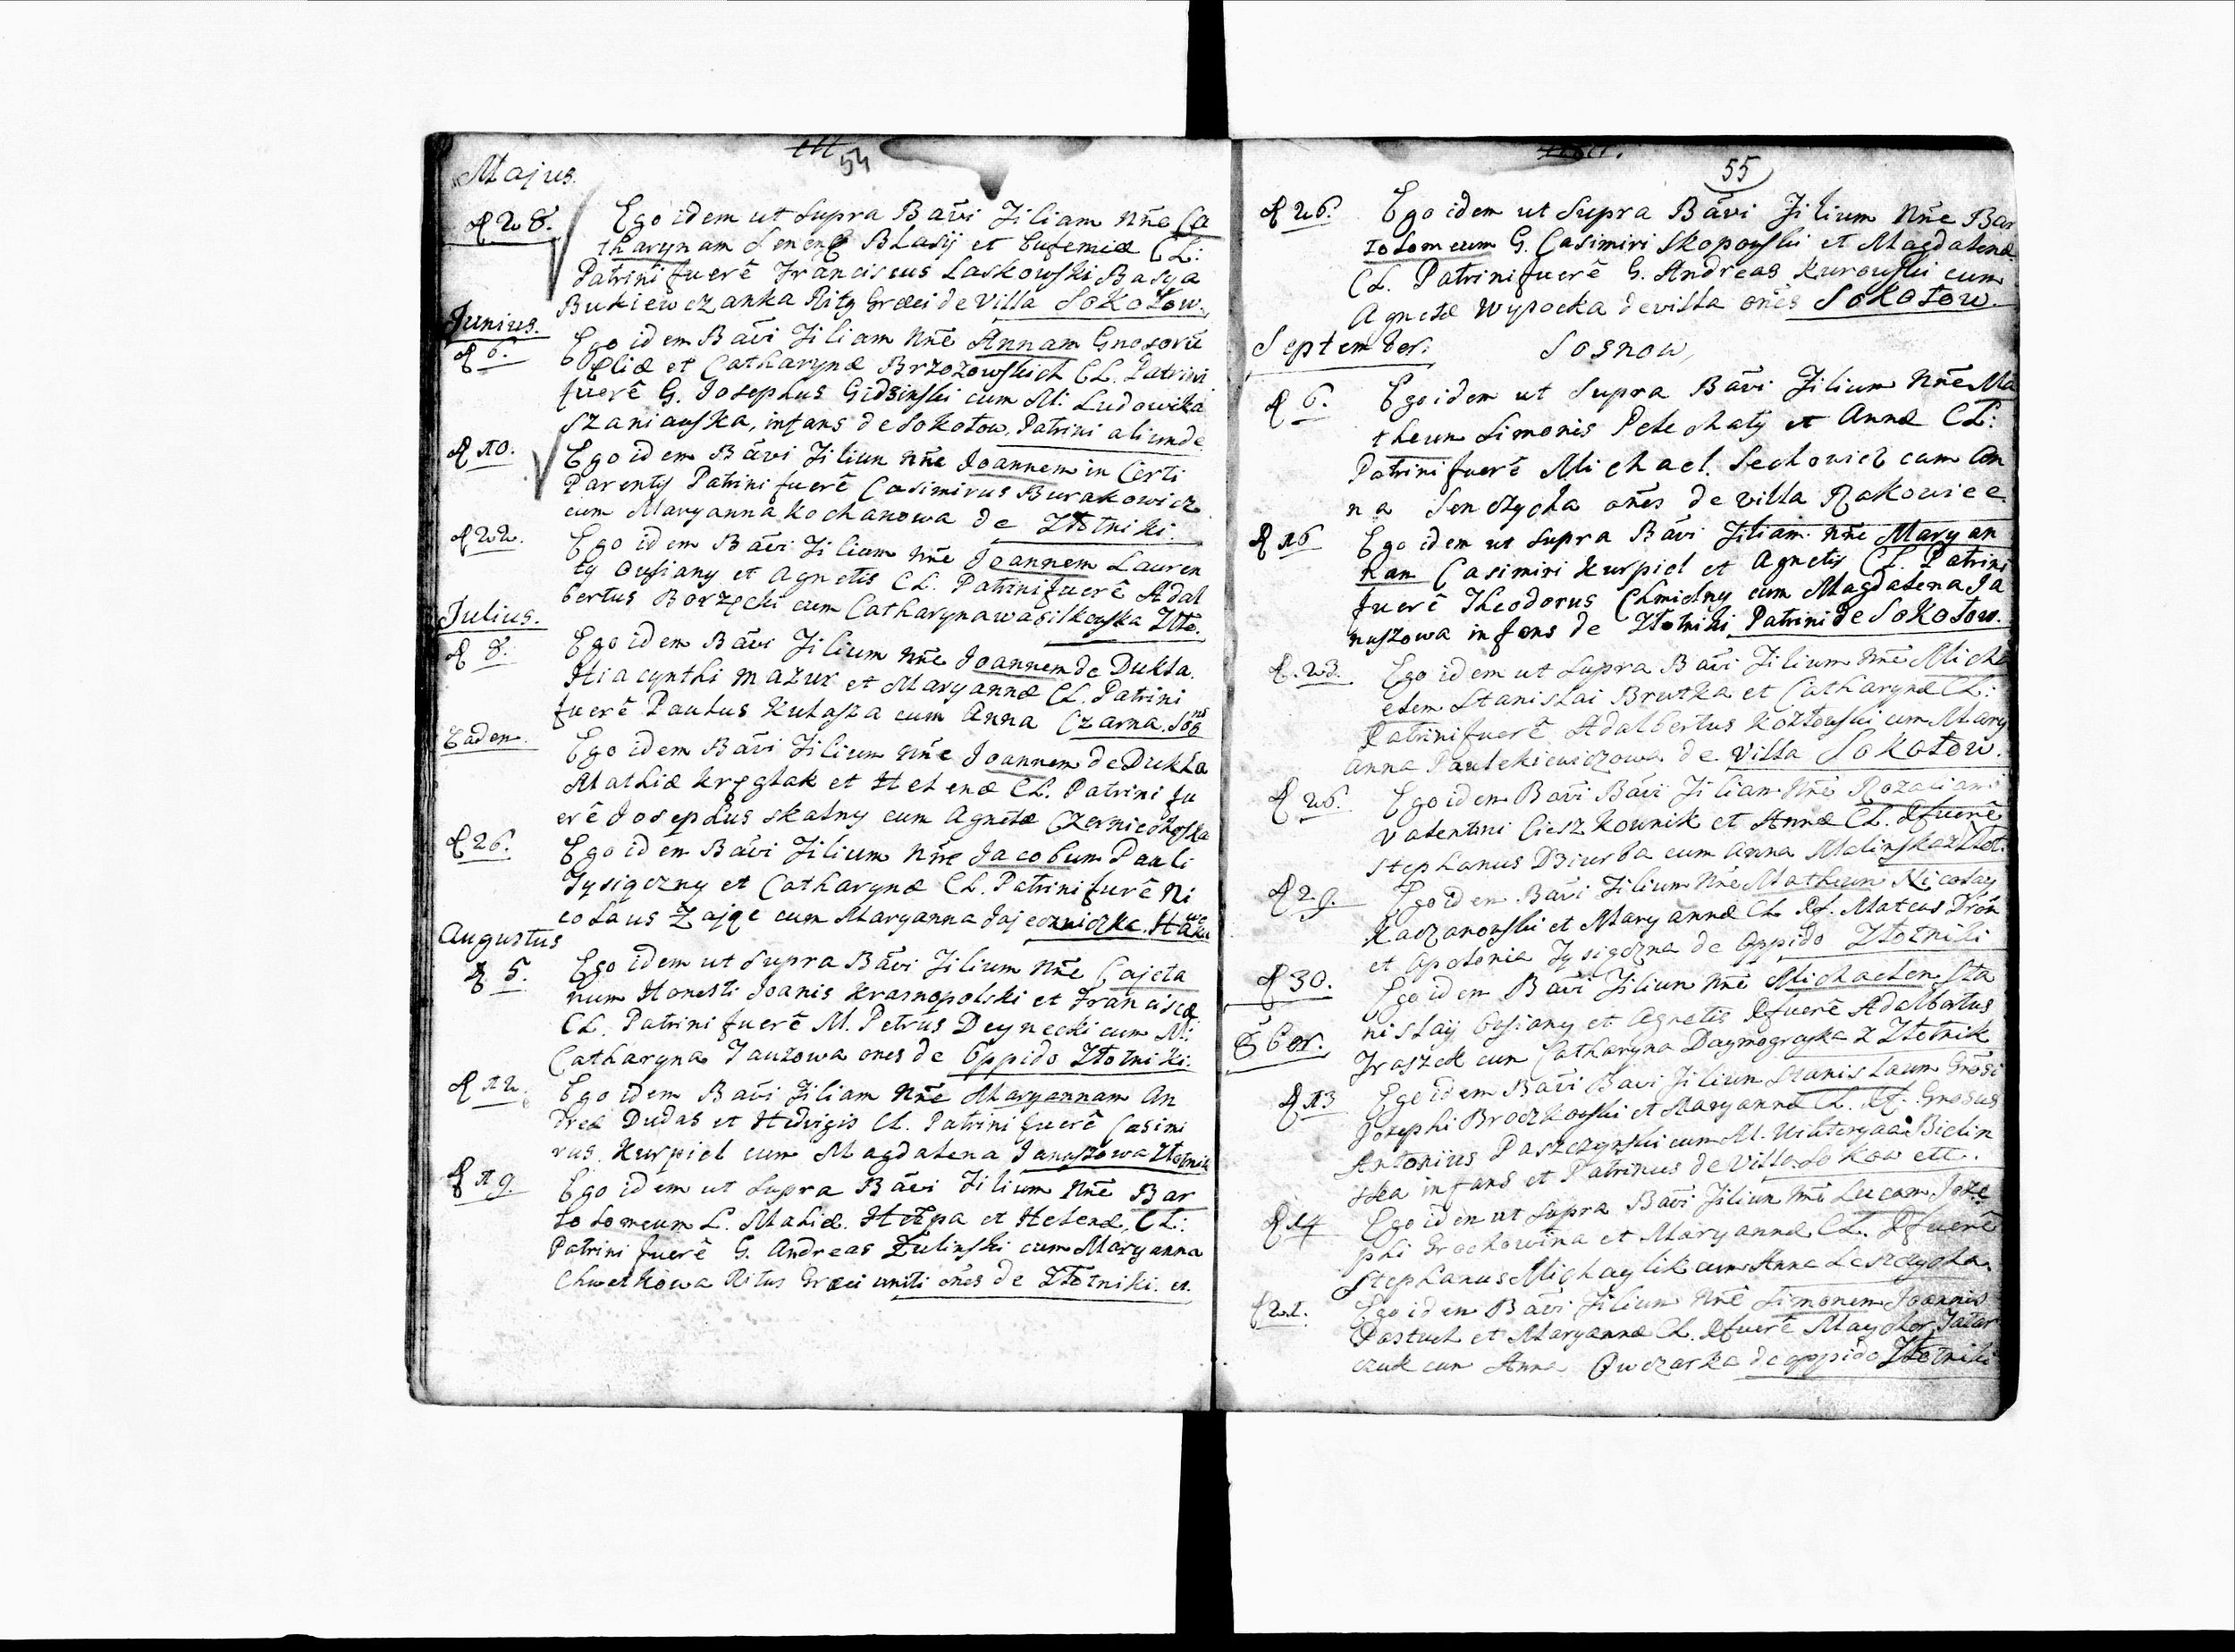 54
Majus.
d 28. Ego idem ut Supra Bãvi Filiam Nñe Ca
tharynam Senen Blasij et Eufemiæ CL:
Patrini fuerẽ Franciscus Laskowski Basya
Bukiewczanka Rity Græci de Villa Sokołow.
Junius.
d 6. Ego idem Bãvi Filiam Nñe Annam Gnosorũ
Eliæ et Catharynæ Brzozowskich CL. Patrini
fuerẽ G. Josephus Gidzinski cum M. Ludowika
Szaniauska, infans de Sokołow, Patrini aliunde
d 10. Ego idem Bãvi Filiun Nñe Joannem in Certi
Parentÿ Patrini fuerẽ Casimirus Burakowicz
cum Maryanna Kochanowa de Złotniki.
d 22. Ego idem Bãvi Filium Nñe Joannem Lauren
ty Ousiany et Agnetis CL. Patrini fuerẽ Adal
bertus Borzęcki cum Catharyna Wasilkouska Zło.
Julius.
d 8. Ego idem Bãvi Filium Nñe Joannem de Dukla.
Hiacynthi Mazur et Maryannæ CL. Patrini
fuerẽ Paulus Kulasza cum Anna Czarna. Sos
Eadem. Ego idem Bãvi Filium Nñe Joannem de Dukla
Mathiæ Kręglak et Helenæ CL. Patrini fu
erẽ Josephus Skalny cum Agnetæ Czerniechoska
d 26. Ego idem Bãvi Filium Nñe Jacobum Pauli
Tysiączny et Catharynæ CL. Patrini furẽ Ni
colaus Zając cum Maryanna
Augustus
d 5. Ego idem ut Supra Bãvi Filium Nñe Cajeta
num Honesti Joanis Krasnopolski et Franciscæ
CL. Patrini fuerẽ M. Petrus Deynecki cum M:
Catharyna Jauzowa ones de Oppido Złotniki.
d 12. Ego idem Bavi Filiam Nñe Maryannam An
dreæ Dudas et Hedvigis CL. Patrini fuerẽ Casimi
rus Kurpiel cum Magdalena Januszowa Złotniki
d 19. Ego idem ut Supra Bãvi Filium Nñe Bar
tolomeum L. Mahiæ. Hełpa et Helenæ, CL:
Patrini fuerẽ G. Andreas Zulinski cum Maryanna
Chwetkowa Ritus Græci uniti ones de Złotniki. et.
55
d 26. Ego idem ut Supra Bãvi Filium Nñe Bar
tolomeum G. Casimiri Skopowski et Magdalenæ
CL. Patrini fuerẽ G. Andreas Kurowski cum
Agnetæ Wysocka de villa ones Sokołow.
September. Sosnow,
d 6. Ego idem ut Supra Bãvi Filium Nñe Ma
theum Simonis Pelechaty et Annæ CL:
Patrini fuerẽ Michael Sechowicz cum An
na Senczycha ones de villa Rakowiec
d 16 Ego idem ut Supra Bãvi Filiam Nñe Maryan
nam Casimiri Kurpiel et Agnetis CL. Patrini
fuerẽ Theodorus Chmielny cum Magdalena Ja
nuszowa infans de Złotniki Patrini de Sokołow.
d. 23. Ego idem ut Supra Bãvi Filium Nñe Micha
elem Stanislai Brutka et Catharynæ CL:
Patrini fuerẽ Adalbertus Kozłowski cum Mary
anna Paulekiewiczowa de Villa Sokołow.
d 26. Ego idem Bavi Bãvi Filiam Nñe Rozaliam
Valentini Cieszkownik et Annæ CL. Pfuerẽ
Stephanus Dziurba cum Anna Malinska z Złot.
d 29. Ego idem Bãvi Filium Nñe Matheum Nicolay
Kaczanowski et Maryannæ CL. Pf. Mateus Dron
et Apolonia Tysięczna de Oppido Złotniki
d 30. Ego idem Bãvi Filiun Nñe Michaelem Sta
nislaij Ousiany et Agnetis Pfuerẽ Adalbertus
Fraszek cum Catharyna z Złotnik
8bor.
d 13 Ego idem Bãvi Bavi Filiun Stanislaum Gnosi
Josephi Broczkowski et Maryannæ CL. Pf. Gnosus
Antonius Paszczynski cum M. Wiktorya Bielin
ska infans et Patrinus de Villa Sokow ett.
d 14 Ego idem ut Supra Bãvi Filium Nñe Lucam Jose
phi Grochowina et Maryannæ CL. Pfuerẽ
Stephanus Michaylik cum Anna Leszczycha
d 21. Ego idem Bãvi Filium Nñe Simonem Joannis
Pastuch et Maryannæ CL. Pfuerẽ Maycher Tatar
czuk cum Anna Owczarka de oppido Złotniki